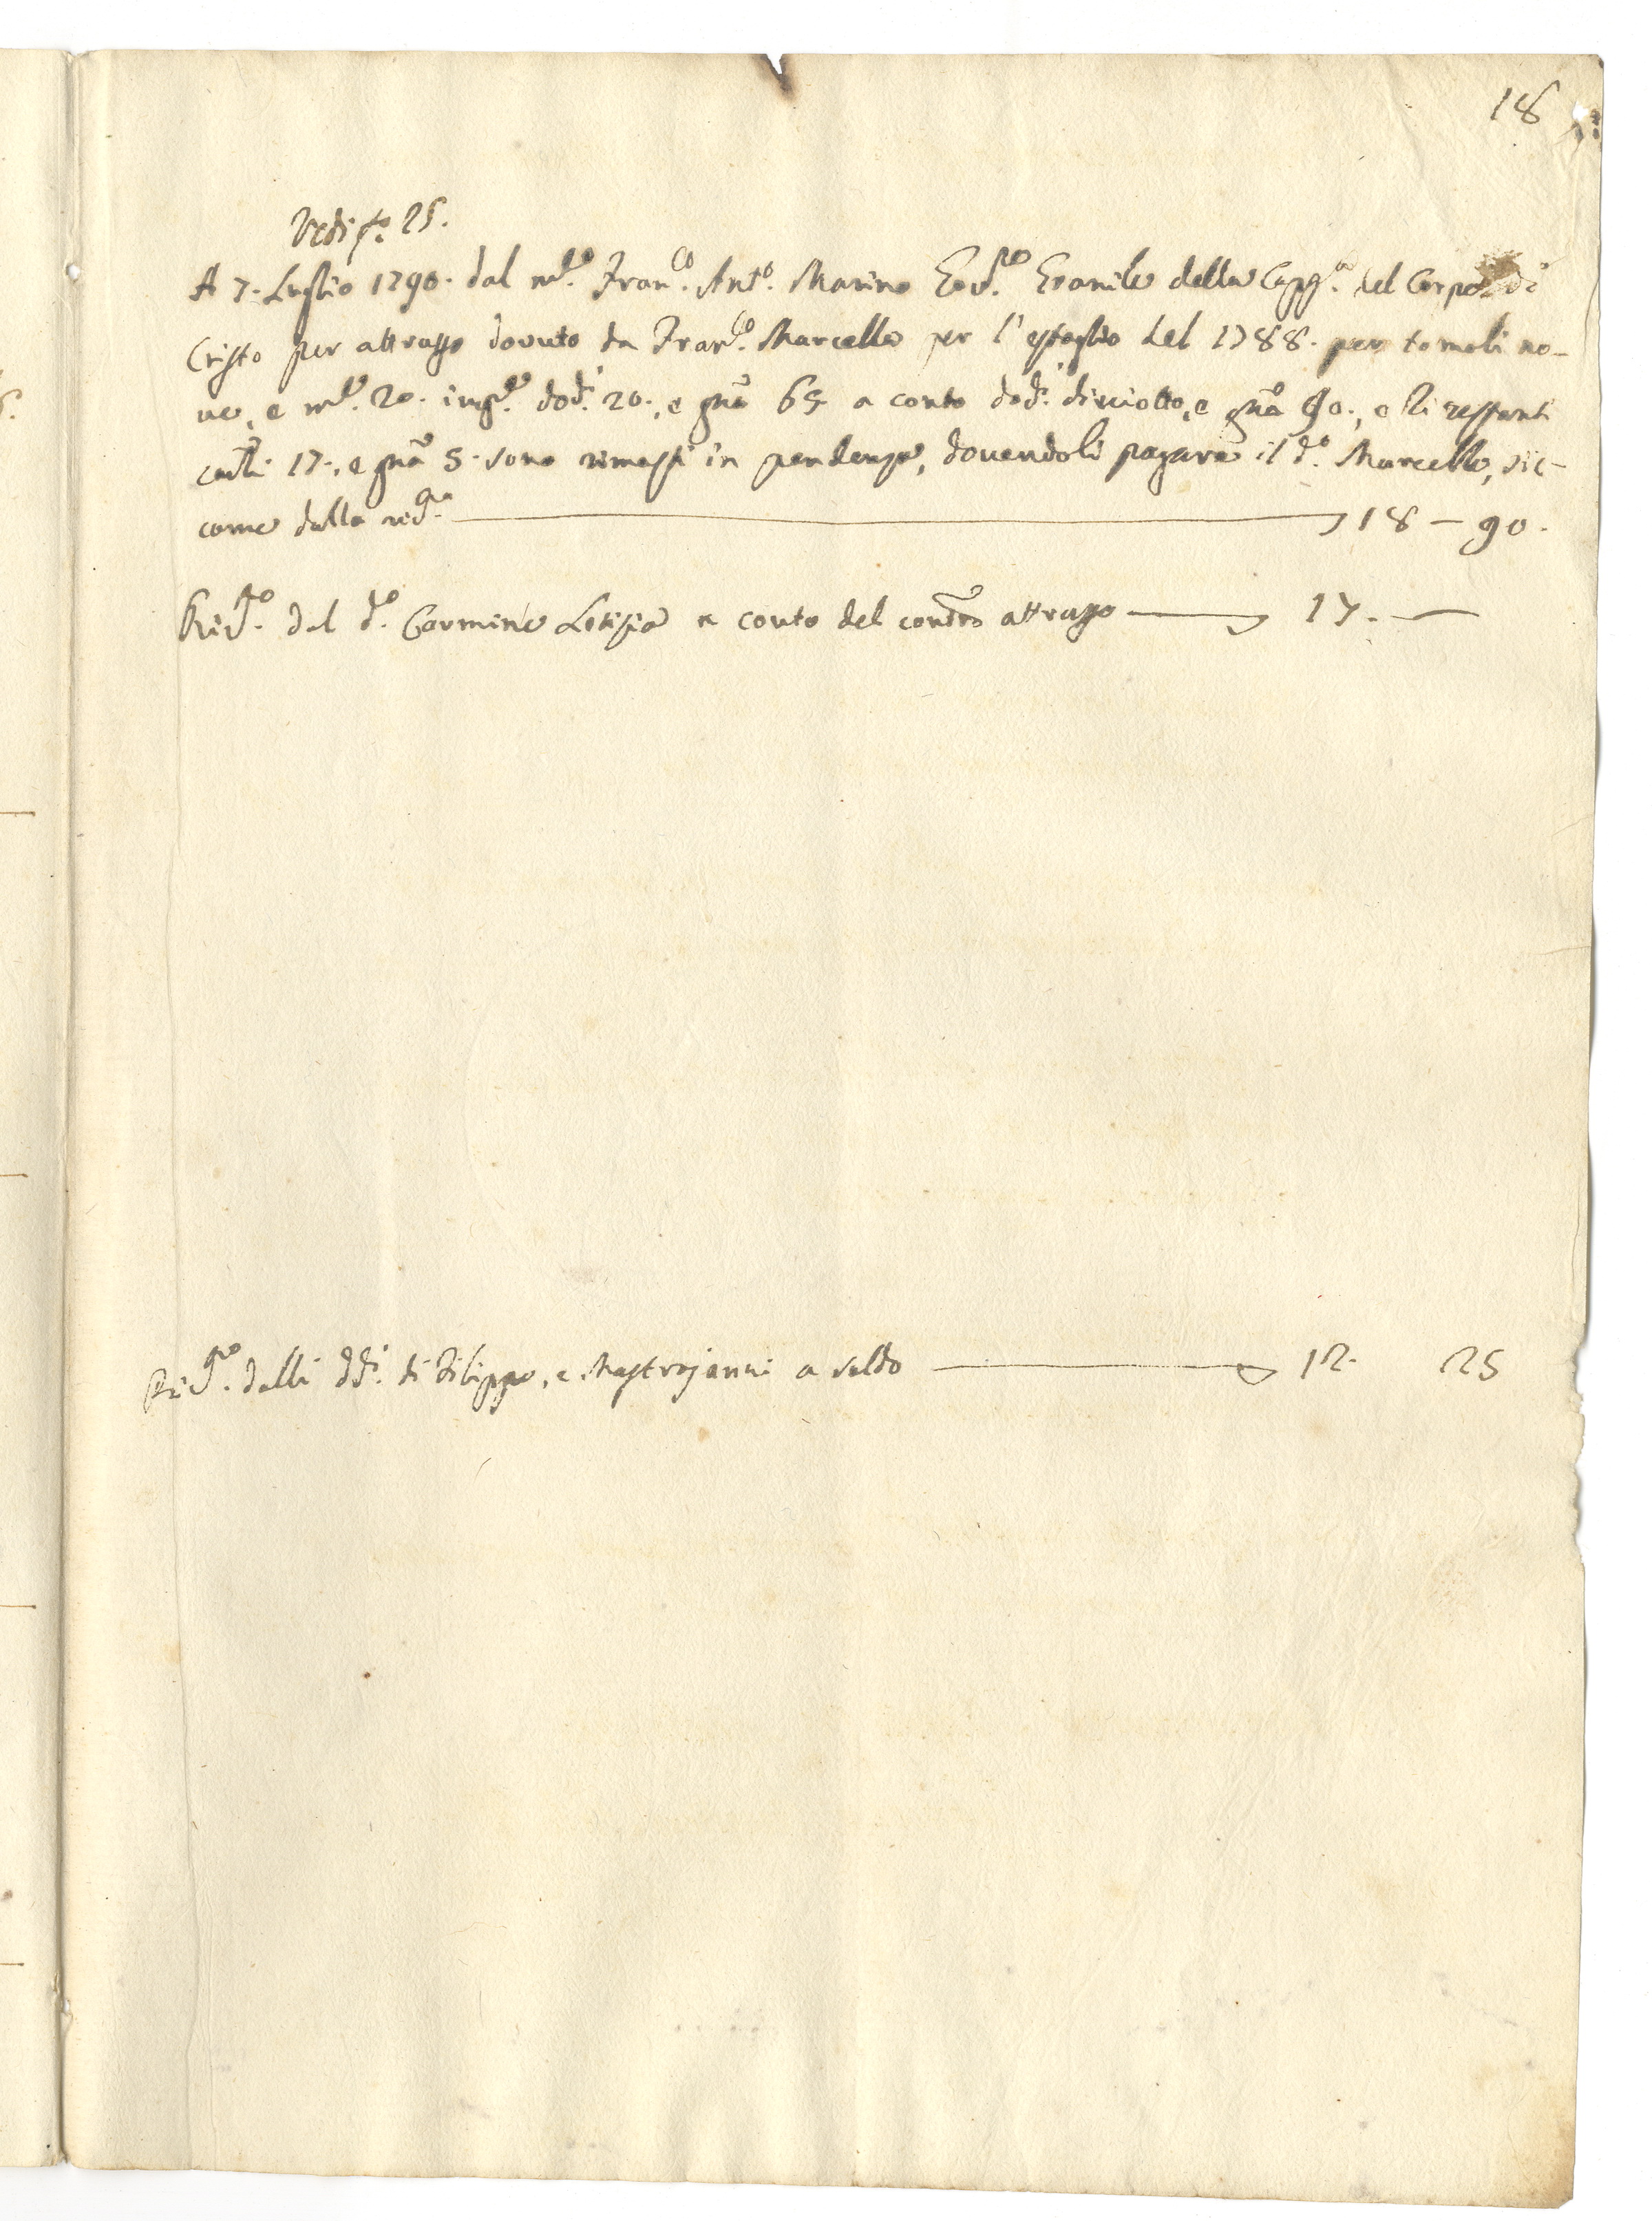 18
Vedi fo. 25.
A 7. Luglio 1790. dal mco. Franco. Anto. Marino della Cappa. del Corpo di
Cristo per attrasso dovuto da Franco. Marcello per l'estaglio del 1788. per tomoli no-
ve, e mre. 20. dodi. 20., e gna 65 a conto dodi. dieciotto, e gna 90., e li restanti
carli 17., e gna 5. sono rimasti in pendenza, dovendoli pagare il do. Marcello, sic-
come dalla 18 — 90.
dal do. Carmine Letizia a conto del contro attrasso 17. —
dalli ddi. di Filippo, e Mastrojanni a saldo 12. 25